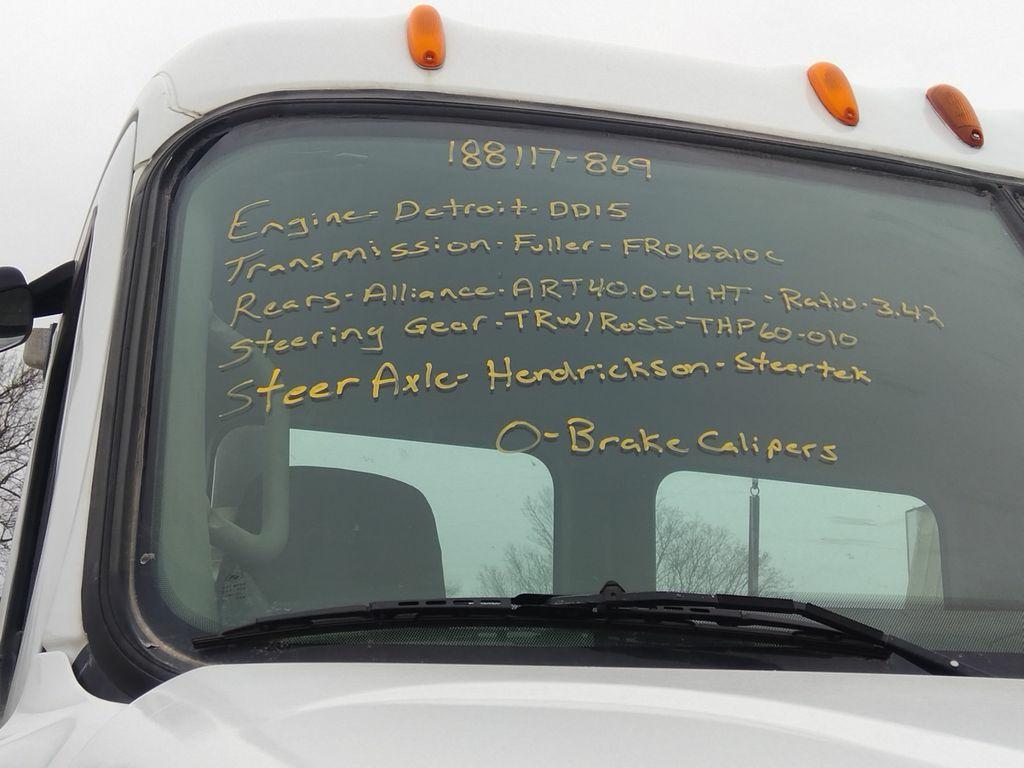 188117-869
Engine- Detroit-DD15
Transmission-Fuller-FRO16210C
Rears-Alliance-ART40.0-4 HT-Ratio-3.42
Steering Gear-TRW/Ross-THP60-010
Steer Axle-Hendrickson-Steertek
O-Brake Calipers